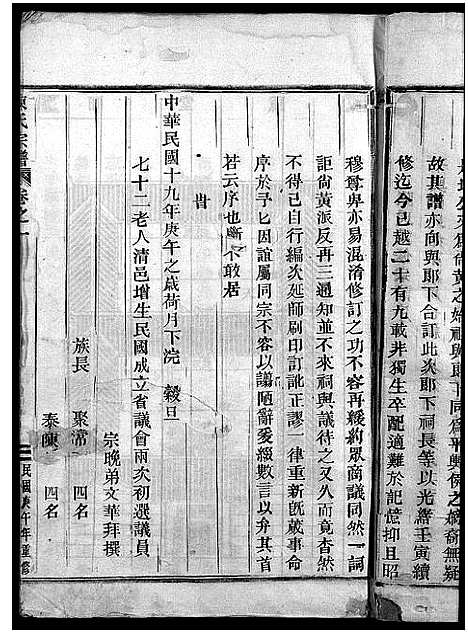 故其譜亦向與耶下合訂此次耶下祠長等以光緒壬寅續
修迄今已越二十有九載非獨生卒配適難於記憶抑且昭
穆尊卑亦易混淆修訂之功不容再緩約眾商議同然一詞
詎尚黃派反再三通知並不來祠與議待之又久而竟杳然
不得已自行編次延師刷印訂訛正謬一律重新既蕆事命
序於予匕因誼屬同宗不容以譾陋辭爰綴數言以弁其首
若云序也斷不敢居
中華民國十九年庚午之歲荷月下浣 穀旦
七十二老人清邑增生民國成立省議會兩次初選議員
宗晚弟文華拜撰
族長 聚常 四名
泰陳 四名
氏宗譜 卷之一 民國庚午年重修